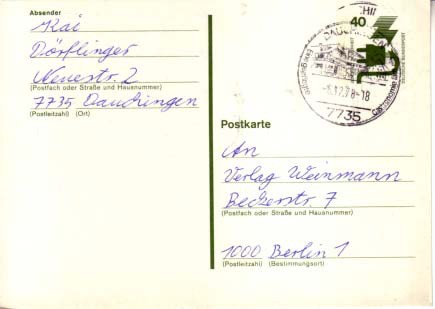 Absender
Kai
Dörflinger
Neuestr. 2
(Postfach oder Straße und Hausnummer)
7735 Dauchingen
(Postleitzahl) (Ort)
40
DAUCHINGEN
-6.12.78-18
7735
Postkarte
An
Verlag Weinmann
Beckerstr. 7
(Postfach oder Straße und Hausnummer)
1000 Berlin 1
(Postleitzahl) (Bestimmungsort)